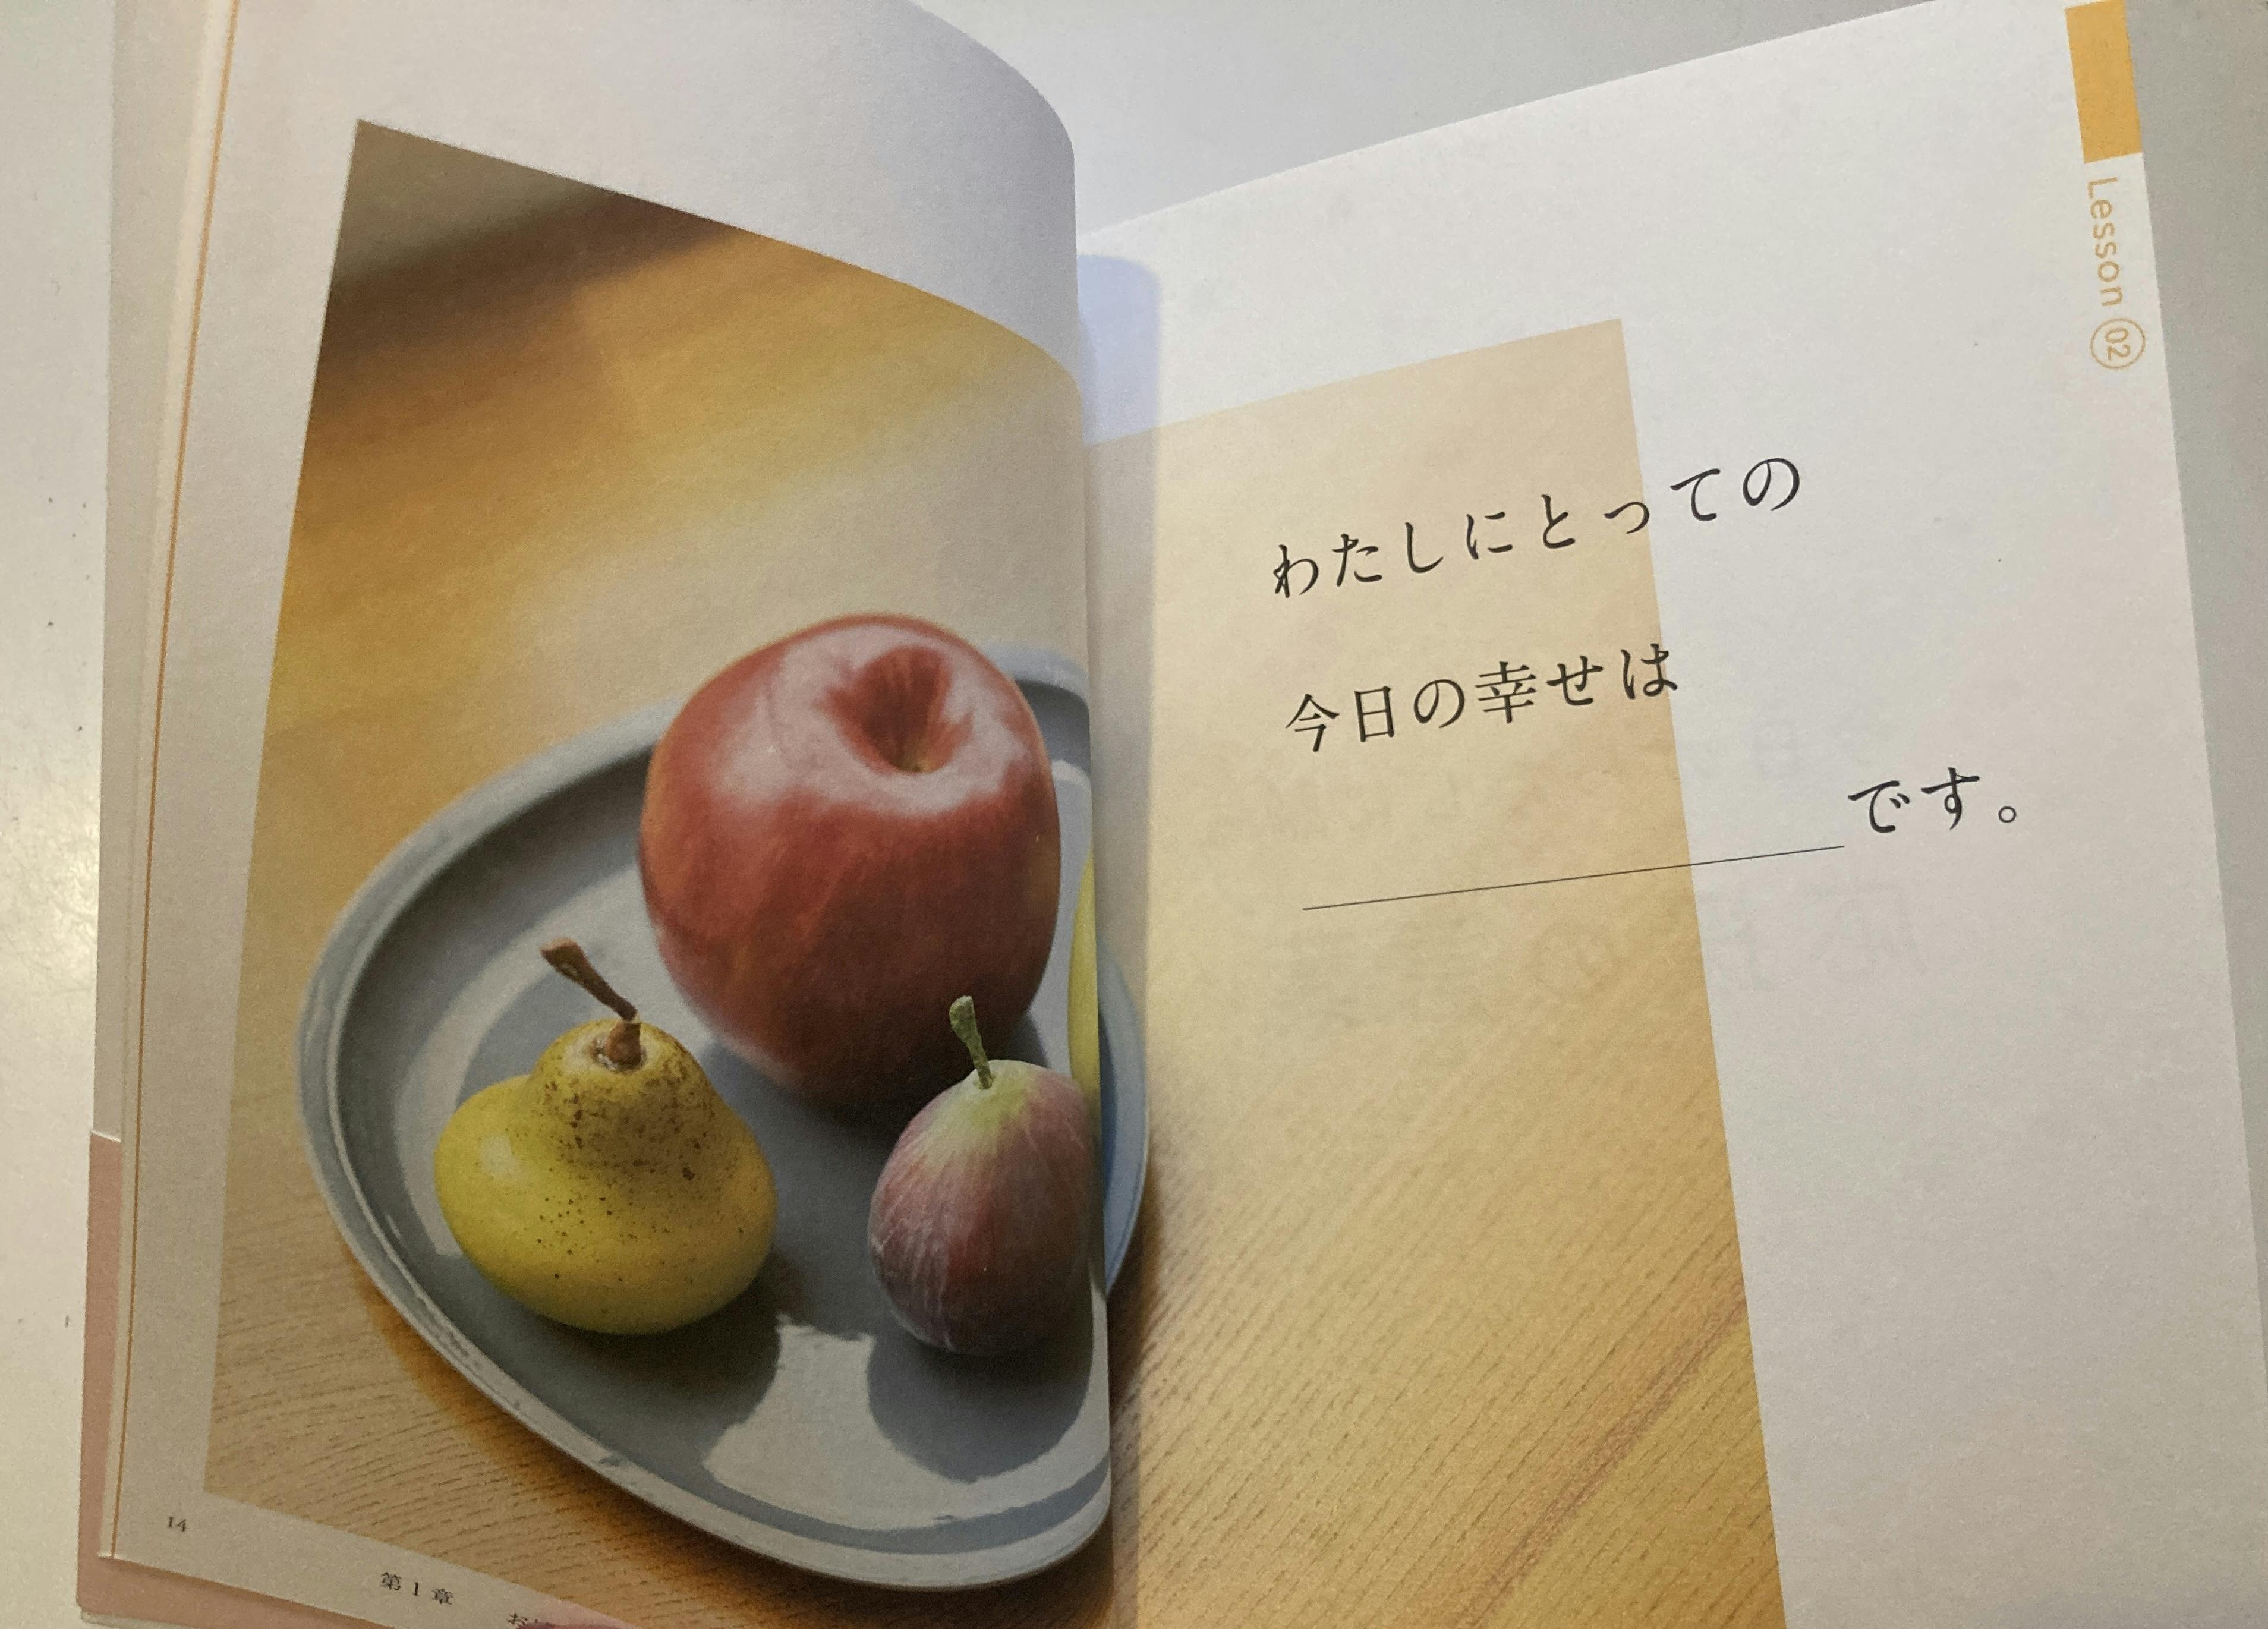 14
第1章
Lesson 02
わたしにとっての
今日の幸せは
です。